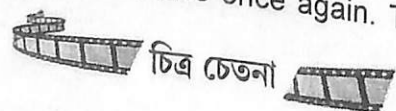 once again. T
চিত্র চেতনা